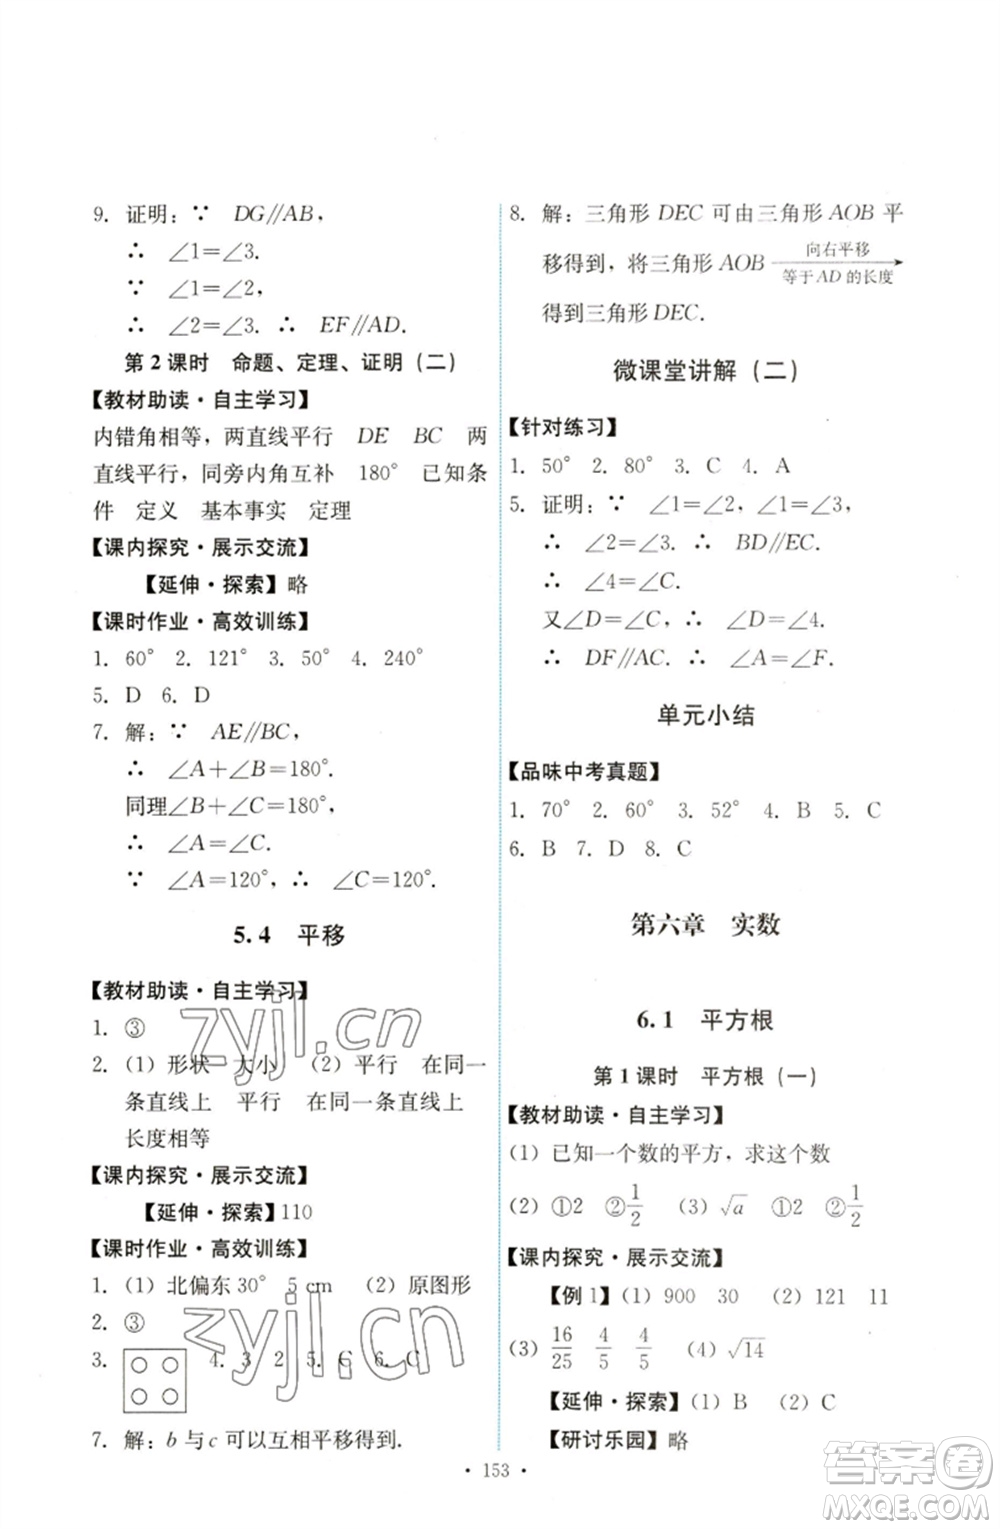 9. 证明：∵ DG∥AB,
∴ ∠1=∠3.
∵ ∠1=∠2,
∴ ∠2=∠3. ∴ EF∥AD.
第2课时 命题、定理、证明（二）
【教材助读·自主学习】
内错角相等，两直线平行 DE BC 两
直线平行，同旁内角互补 180° 已知条
件 定义 基本事实 定理
【课内探究·展示交流】
【延伸·探索】略
【课时作业·高效训练】
1. 60° 2. 121° 3. 50° 4. 240°
5. D 6. D
7. 解：∵ AE∥BC,
∴ ∠A+∠B=180°.
同理∠B+∠C=180°,
∴ ∠A=∠C.
∵ ∠A=120°, ∴ ∠C=120°.
5.4 平移
【教材助读·自主学习】
1. ③
2. (1) 形状 大小 (2) 平行 在同一
条直线上 平行 在同一条直线上
长度相等
【课内探究·展示交流】
【延伸·探索】110
【课时作业·高效训练】
1. (1) 北偏东30° 5 cm (2) 原图形
2. ③
3. 4. 3 2 5. C 6. C
7. 解：b 与 c 可以互相平移得到.
8. 解：三角形 DEC 可由三角形 AOB 平
移得到，将三角形 AOB 向右平移 等于 AD 的长度
得到三角形 DEC.
微课堂讲解（二）
【针对练习】
1. 50° 2. 80° 3. C 4. A
5. 证明：∵ ∠1=∠2, ∠1=∠3,
∴ ∠2=∠3. ∴ BD∥EC.
∴ ∠4=∠C.
又∠D=∠C, ∴ ∠D=∠4.
∴ DF∥AC. ∴ ∠A=∠F.
单元小结
【品味中考真题】
1. 70° 2. 60° 3. 52° 4. B 5. C
6. B 7. D 8. C
第六章 实数
6.1 平方根
第1课时 平方根（一）
【教材助读·自主学习】
(1) 已知一个数的平方，求这个数
(2) ①2 ②1/2 (3) √a ①2 ②1/2
【课内探究·展示交流】
【例1】(1) 900 30 (2) 121 11
(3) 16/25 4/5 4/5 (4) √14
【延伸·探索】(1) B (2) C
【研讨乐园】略
• 153 •
zyjl.cn
zyjl.cn
答案圈
MXQE.COM